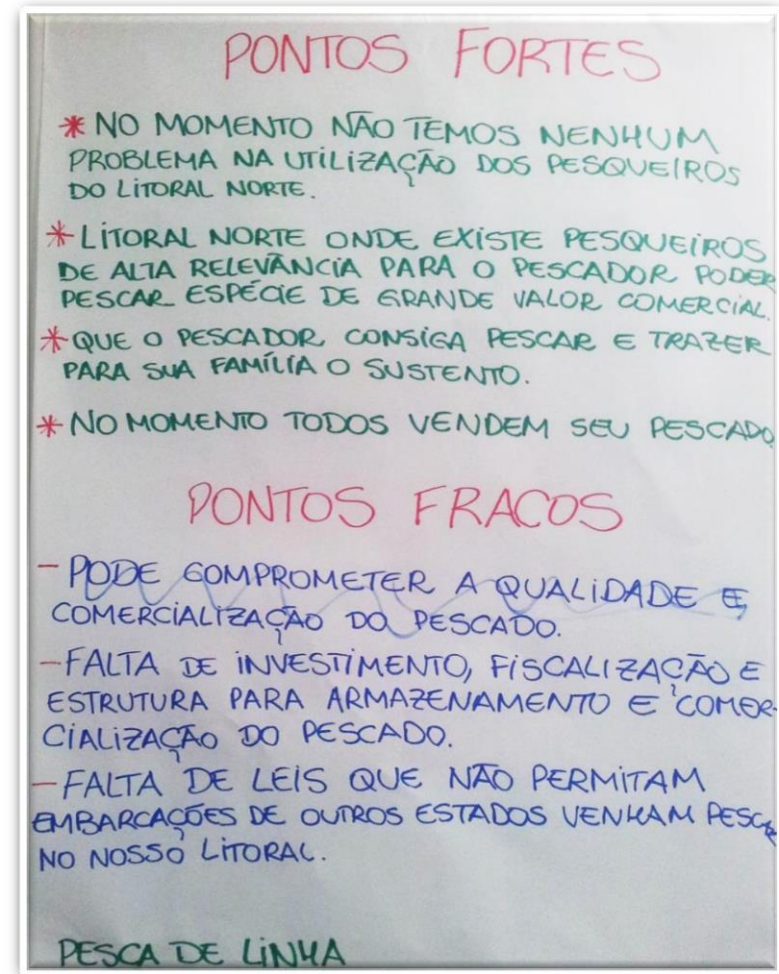 PONTOS FORTES
* NO MOMENTO NÃO TEMOS NENHUM
PROBLEMA NA UTILIZAÇÃO DOS PESQUEIROS
DO LITORAL NORTE.
* LITORAL NORTE ONDE EXISTE PESQUEIROS
DE ALTA RELEVÂNCIA PARA O PESCADOR PODER
PESCAR ESPÉCIE DE GRANDE VALOR COMERCIAL.
* QUE O PESCADOR CONSIGA PESCAR E TRAZER
PARA SUA FAMÍLIA O SUSTENTO.
* NO MOMENTO TODOS VENDEM SEU PESCADO
PONTOS FRACOS
- PODE COMPROMETER A QUALIDADE E
COMERCIALIZAÇÃO DO PESCADO.
- FALTA DE INVESTIMENTO, FISCALIZAÇÃO E
ESTRUTURA PARA ARMAZENAMENTO E COMER-
CIALIZAÇÃO DO PESCADO.
- FALTA DE LEIS QUE NÃO PERMITAM
EMBARCAÇÕES DE OUTROS ESTADOS VENHAM PESCAR
NO NOSSO LITORAL.
PESCA DE LINHA